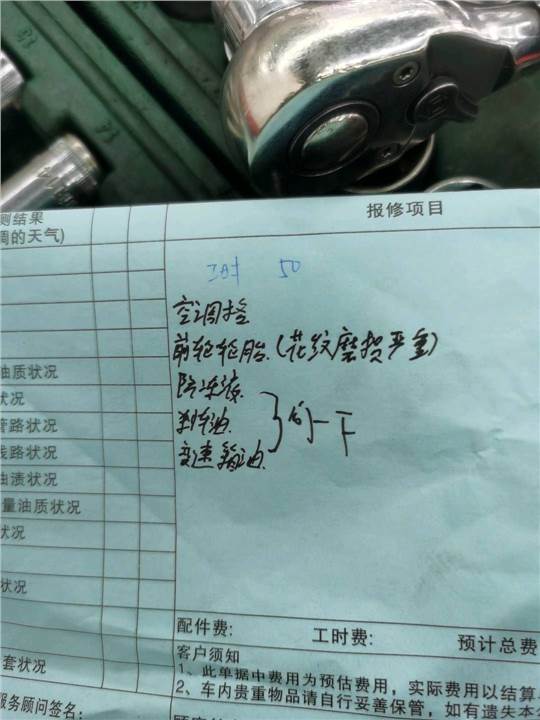 测结果
周的天气)
报修项目
50
空调格
前轮轮胎.(花纹磨损严重)
防冻液.
刹车油.
变速箱油.
一下
油质状况
状况
管路状况
线路状况
由渍状况
量油质状况
状况
状况
配件费: 工时费: 预计总费
客户须知
1、此单据中费用为预估费用,实际费用以结算
2、车内贵重物品请自行妥善保管,如有遗失本
套状况
服务顾问签名: